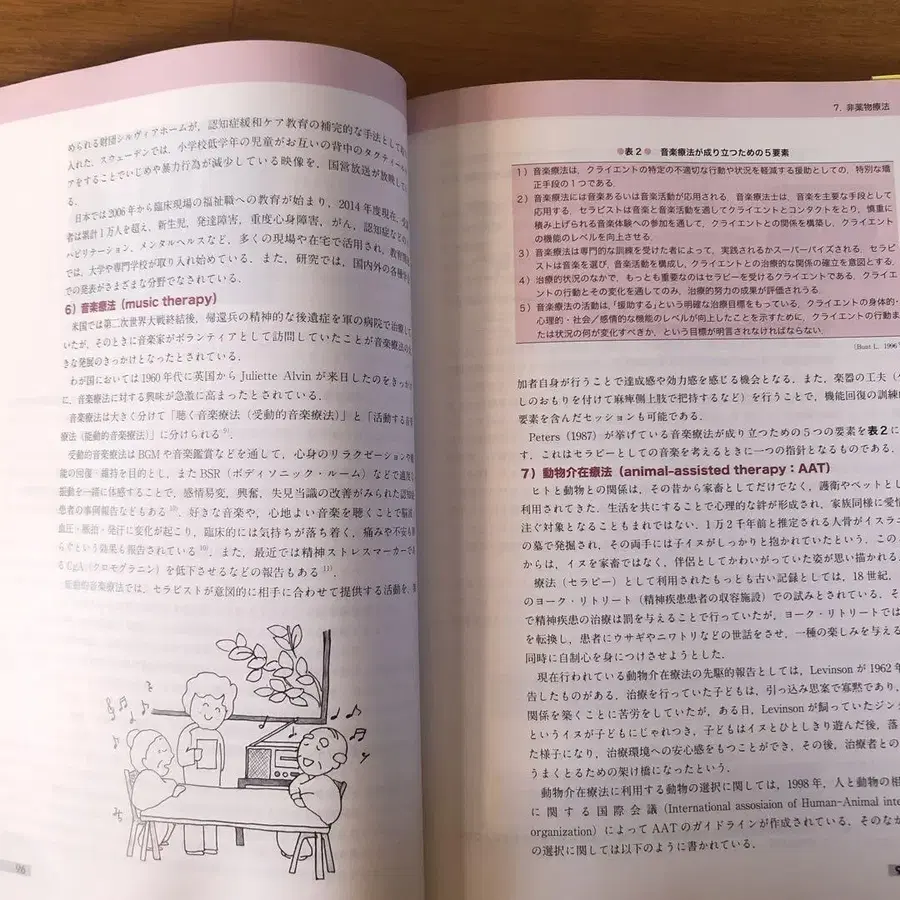 められる財団シルヴィアホームが，認知症緩和ケア教育の補完的な手法として
入れた．スウェーデンでは，小学校低学年の児童がお互いの背中のタクティール
アをすることでいじめや暴力行為が減少している映像を，国営放送が放映してい
る．
日本では2006年から臨床現場の福祉職への教育が始まり，2014年度現在，
者は累計1万人を超え，新生児，発達障害，重度心身障害，がん，認知症など
ハビリテーション，メンタルヘルスなど，多くの現場や在宅で活用され，教育
では，大学や専門学校が取り入れ始めている．また，研究では，国内外の各種
での発表がさまざまな分野でなされている．
6）音楽療法（music therapy）
米国では第二次世界大戦終結後，帰還兵の精神的な後遺症を軍の病院で治療して
いたが，そのときに音楽家がボランティアとして訪問していたことが音楽療法の
きな発展のきっかけとなったとされている．
わが国においては1960年代に英国からJuliette Alvinが来日したのをきっか
に，音楽療法に対する興味が急激に高まったとされている．
音楽療法は大きく分けて「聴く音楽療法（受動的音楽療法）」と「活動する音楽
療法（能動的音楽療法）」に分けられる9)．
受動的音楽療法はBGMや音楽鑑賞などを通して，心身のリラクゼーションや機
能の回復・維持を目的とし，またBSR（ボディソニック・ルーム）などで適度な
振動を一緒に体感することで，感情易変，興奮，失見当識の改善がみられた認知症
患者の事例報告などもある10)．好きな音楽や，心地よい音楽を聴くことで脳波，
血圧・脈泊・発汗に変化が起こり，臨床的には気持ちが落ち着く，痛みや不安も和
らぐという効果も報告されている10)．また，最近では精神ストレスマーカーであ
るCgA（クロモグラニン）を低下させるなどの報告もある11)．
能動的音楽療法では，セラピストが意図的に相手に合わせて提供する活動を，
96
7．非薬物療法
●表2● 音楽療法が成り立つための5要素
1）音楽療法は，クライエントの特定の不適切な行動や状況を軽減する援助としての，特別な矯
正手段の1つである．
2）音楽療法には音楽あるいは音楽活動が応用される．音楽療法士は，音楽を主要な手段として
応用する．セラピストは音楽と音楽活動を通してクライエントとコンタクトをとり，慎重に
積み上げられる音楽体験への参加を通して，クライエントとの関係を構築し，クライエント
の機能のレベルを向上させる．
3）音楽療法は専門的な訓練を受けた者によって，実践されるかスーパーバイズされる．セラピ
ストは音楽を選び，音楽活動を構成し，クライエントとの治療的な関係の確立を意図とする．
4）治療的状況のなかで，もっとも重要なのはセラピーを受けるクライエントである．クライエ
ントの行動とその変化を通してのみ，治療的努力の成果が評価されうる．
5）音楽療法の活動は，「援助する」という明確な治療目標をもっている．クライエントの身体的・
心理的・社会／感情的な機能のレベルが向上したことを示すために，クライエントの行動ま
たは状況の何が変化すべきか，という目標が明言されなければならない．
（Bunt L. 1996
加者自身が行うことで達成感や効力感を感じる機会となる．また，楽器の工夫（
しのおもりを付けて麻痺側上肢で把持するなど）を行うことで，機能回復の訓練
要素を含んだセッションも可能である．
Peters（1987）が挙げている音楽療法が成り立つための5つの要素を表2に
す．これはセラピーとしての音楽を考えるときに一つの指針となるものである．
7）動物介在療法（animal-assisted therapy：AAT）
ヒトと動物との関係は，その昔から家畜としてだけでなく，護衛やペットとし
利用されてきた．生活を共にすることで心理的な絆が形成され，家族同様に愛情
注ぐ対象となることもまれではない．1万2千年前と推定される人骨がイスラエ
の墓で発掘され，その両手には子イスがしっかりと抱かれていたという．この
からは，イヌを家畜ではなく，伴侶としてかわいがっていた姿が思い描かれる．
療法（セラピー）として利用されたもっとも古い記録としては，18世紀，
のヨーク・リトリート（精神疾患患者の収容施設）での試みとされている．そ
で精神疾患の治療は罰を与えることで行っていたが，ヨーク・リトリートでは
を転換し，患者にウサギやニワトリなどの世話をさせ，一種の楽しみを与える
同時に自制心を身につけさせようとした．
現在行われている動物介在療法の先駆的報告としては，Levinsonが1962年
告したものがある．治療を行っていた子どもは，引っ込み思案で寡黙であり，
関係を築くことに苦労をしていたが，ある日，Levinsonが飼っていたジン
というイヌが子どもにじゃれつき，子どもはイヌとひとしきり遊んだ後，落
た様子になり，治療環境への安心感をもつことができ，その後，治療者との
うまくとるための架け橋になったという．
動物介在療法に利用する動物の選択に関しては，1998年，人と動物の相
に関する国際会議（International assosiaion of Human-Animal inte
organization）によってAATのガイドラインが作成されている．そのなか
の選択に関しては以下のように書かれている．